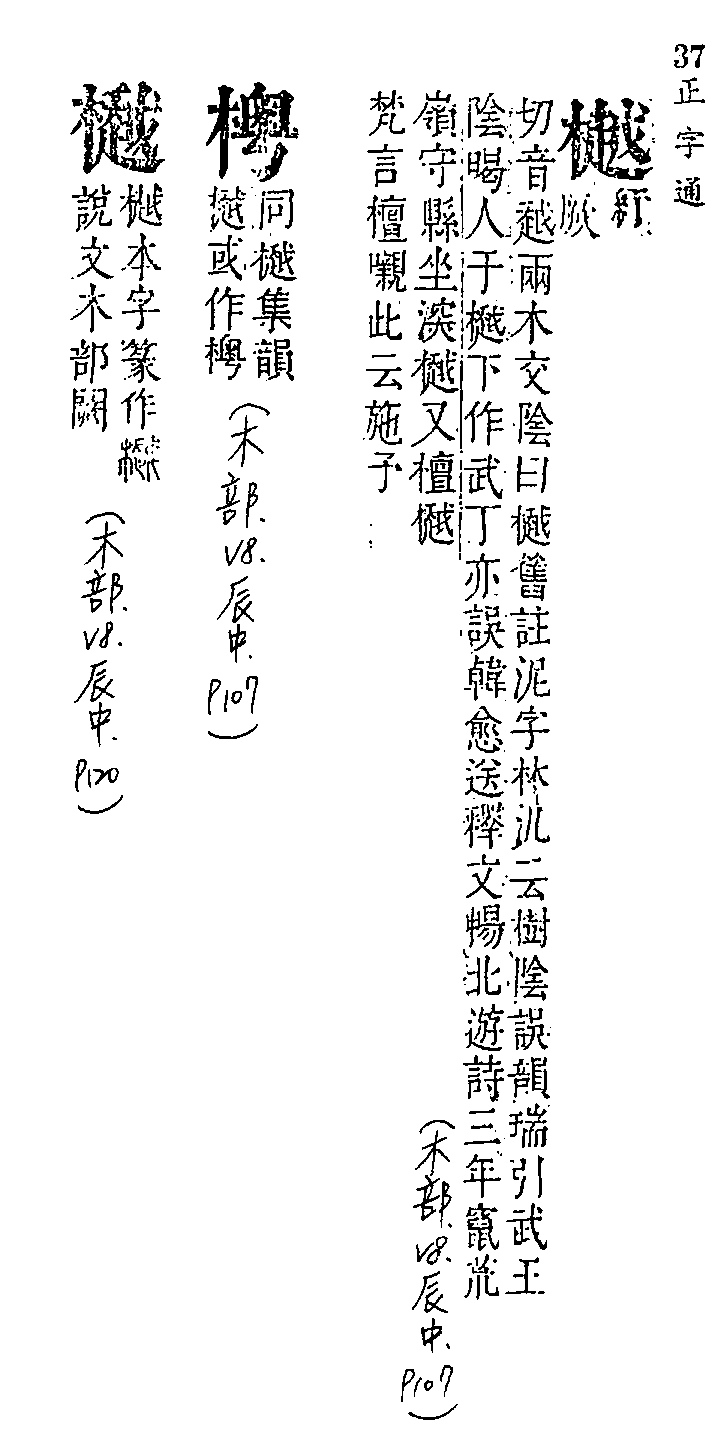 37正字通
樾紆厥
切音越兩木交陰曰樾舊註泥字林汎云樹陰誤韻瑞引武王
陰暍人于樾下作武丁亦誤韓愈送釋文暢北遊詩三年竄荒
嶺守縣坐深樾又檀樾
梵言檀嚫此云施予
(木部.V8.辰中.P107)
同樾集韻
樾或作
(木部.V8.辰中.P107)
樾本字篆作
說文木部闕
(木部.V8.辰中.P120)